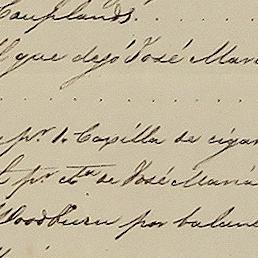 Couplands. . .
que dejó José Mar
. . . . . . . . . .
pr. 1. Capilla de cigar
pr. cta. de José María
Woodburn por balanc